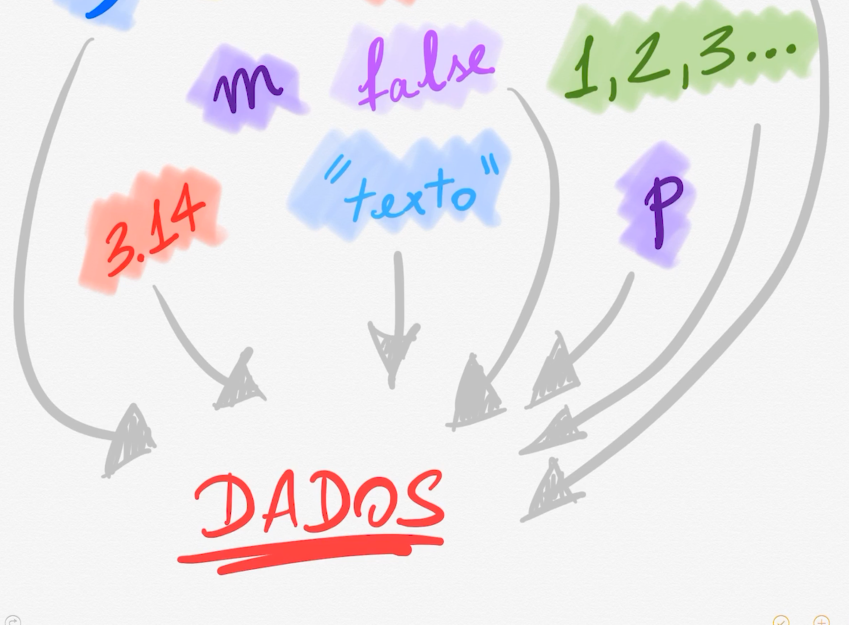 m false 1,2,3...
3.14 "texto" p
DADOS